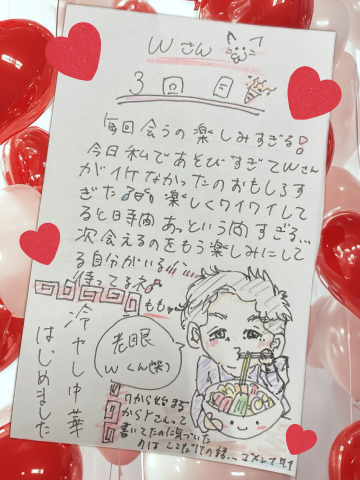 Wさん
3回目
毎回会うの楽しみすぎる!
今日私であそびすぎてWさん
がイケなかったのおもしろす
ぎたる問。楽しくワイワイして
ると時間あっという間すぎる…
次会えるのをもう楽しみにして
る自分がいるぐらい!!!
待ってるネ
ももゥ
冷やし中華
はじめました
老眼
Wくん(笑)
Wから始まる
からYさんって
書いてたのに気づいた
のはここだけの話…ゴメンナサイ